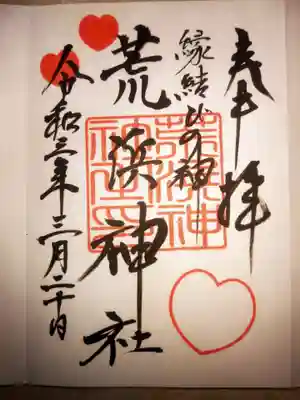 奉拝
縁結びの神
荒浜神社
令和三年三月二十日